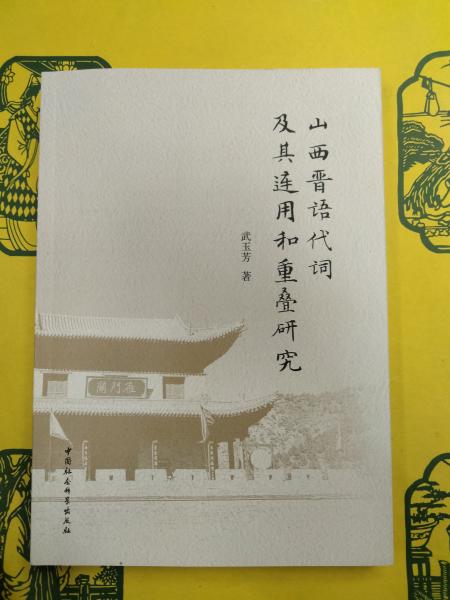 山西晋语代词
及其连用和重叠研究
武玉芳 著
雁门关
中国社会科学出版社